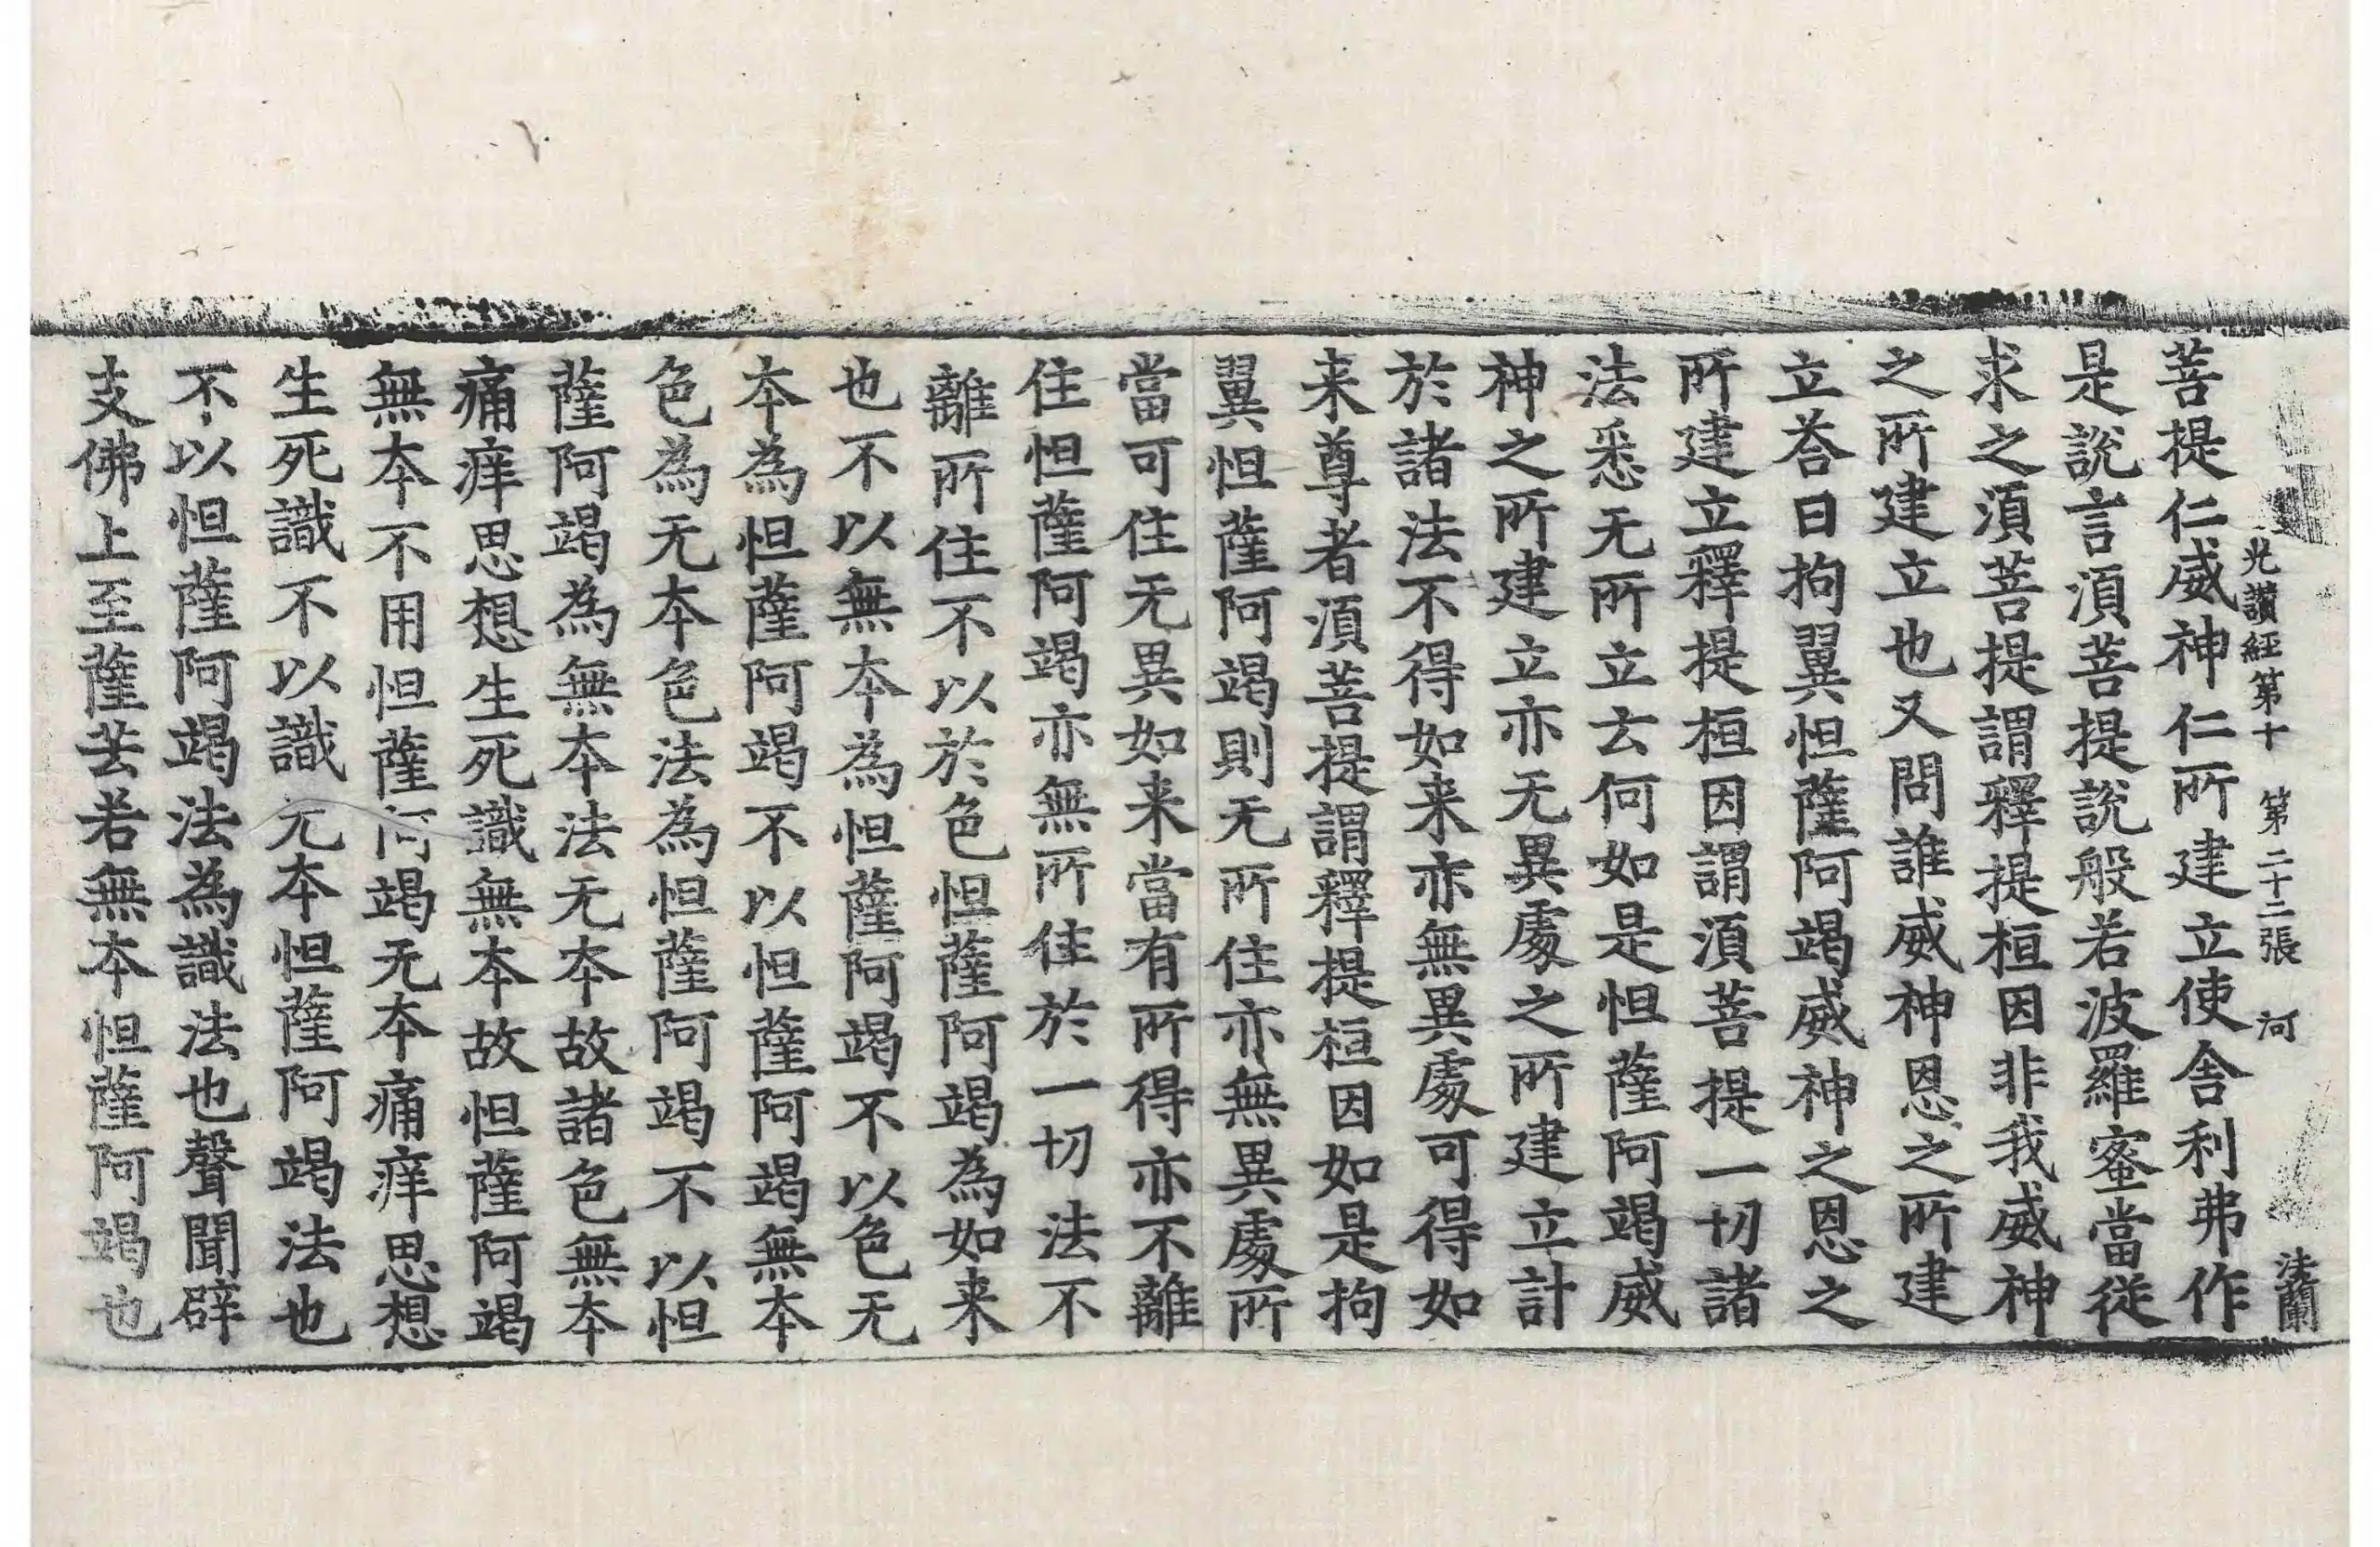 光讃經第十　第二十二張　河　法蘭
菩提仁威神仁所建立使舍利弗作
是說言湏菩提說般若波羅蜜當從
求之湏菩提謂釋提桓因非我威神
之所建立也又問誰威神恩之所建
立荅曰拘翼怛薩阿竭威神之恩之
所建立釋提桓因謂湏菩提一切諸
法悉无所立云何如是怛薩阿竭威
神之所建立亦无異處之所建立計
於諸法不得如来亦無異處可得如
来尊者湏菩提謂釋提桓因如是拘
翼怛薩阿竭則无所住亦無異處所
當可住无異如来當有所得亦不離
住怛薩阿竭亦無所住於一切法不
離所住不以於色怛薩阿竭為如来
也不以無本為怛薩阿竭不以色无
本為怛薩阿竭不以怛薩阿竭無本
色為无本色法為怛薩阿竭不以怛
薩阿竭為無本法无本故諸色無本
痛痒思想生死識無本故怛薩阿竭
無本不用怛薩阿竭无本痛痒思想
生死識不以識无本怛薩阿竭法也
不以怛薩阿竭法為識法也聲聞辟
支佛上至薩芸若無本怛薩阿竭也